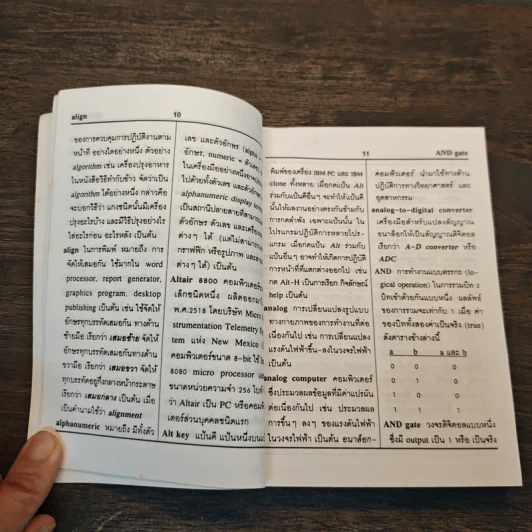 align
10
ของการควบคุมการปฏิบัติงานตาม
หน้าที่ อย่างใดอย่างหนึ่ง ตัวอย่าง
algorithm เช่น เครื่องปรุงอาหาร
ในหนังสือวิธีทำกับข้าว จัดว่าเป็น
algorithm ได้อย่างหนึ่ง กล่าวคือ
จะบอกวิธีว่า แกงชนิดนั้นมีเครื่อง
ปรุงอะไรบ้าง และมีวิธีปรุงอย่างไร
ใส่อะไรก่อน อะไรหลัง เป็นต้น
align ในการพิมพ์ หมายถึง การ
จัดให้เสมอกัน ใช้มากใน word
processor, report generator,
graphics program, desktop
publishing เป็นต้น เช่น ใช้จัดให้
อักษรทุกบรรทัดเสมอกัน ทางด้าน
ซ้ายมือ เรียกว่า เสมอซ้าย จัดให้
อักษรทุกบรรทัดเสมอกันทางด้าน
ขวามือ เรียกว่า เสมอขวา จัดให้
ทุกบรรทัดอยู่กึ่งกลางหน้ากระดาษ
เรียกว่า เสมอกลาง เป็นต้น เมื่อ
เป็นคำนามใช้ว่า alignment
alphanumeric หมายถึง มีทั้งตัว
เลข และตัวอักษร (alpha =
อักษร, numeric = ตัวเลข)
ในเครื่องมืออย่างหนึ่งอาจ
ไปด้วยทั้งตัวเลข และตัวอักษร
alphanumeric display
เป็นสถานีปลายสายที่สามารถ
อักษร ตัวเลข และเครื่อง
ต่างๆ ได้ (แต่ไม่สามารถ
กราฟฟิก หรือรูปภาพ และ
ต่างๆ ได้) เป็นต้น
Altair 8800 คอมพิวเตอร์
เล็กชนิดหนึ่ง ผลิตออกมา
พ.ศ.2518 โดยบริษัท Micro
strumentation Telemetry Sy
tem แห่ง New Mexico เป็
คอมพิวเตอร์ขนาด 8-bit ใช้ In
8080 micro processor และ
ขนาดหน่วยความจำ 256 ไบ
ว่า Altair เป็น PC หรือคอมพิ
เตอร์ส่วนบุคคลชนิดแรก
Alt key แป้นคี แป้นหนึ่งบน
11
AND gate
พิมพ์ของเครื่อง IBM PC และ IBM
clone ทั้งหลาย เมื่อกดแป้น Alt
ร่วมกับแป้นคีอื่นๆ จะทำให้แป้นคี
นั้นให้ผลงานอย่างตรงกันข้ามกับ
การกดลำพัง เฉพาะแป้นนั้น ใน
โปรแกรมปฏิบัติการหลายโปร-
แกรม เมื่อกดแป้น Alt ร่วมกับ
แป้นอื่นๆ อาจทำให้เกิดการปฏิบัติ
การหน้าที่ที่แตกต่างออกไป เช่น
กด Alt-H เป็นการเรียก กิจลักษณ์
help เป็นต้น
analog การเปลี่ยนแปลงรูปแบบ
ทางกายภาพของการทำงานที่ต่อ
เนื่องกันไป เช่น การเปลี่ยนแปลง
แรงดันไฟฟ้าขึ้น-ลงในวงจรไฟฟ้า
เป็นต้น
analog computer คอมพิวเตอร์
ซึ่งประมวลผลข้อมูลที่มีค่าแปรผัน
ต่อเนื่องกันไป เช่น ประมวลผล
การขึ้นๆ ลงๆ ของแรงดันไฟฟ้า
ในวงจรไฟฟ้า เป็นต้น อนาล็อก-
คอมพิวเตอร์ นำมาใช้ทางด้าน
ปฏิบัติการทางวิทยาศาสตร์ และ
อุตสาหกรรม
analog-to-digital converter
เครื่องมือสำหรับแปลงสัญญาณ
อนาล็อกให้เป็นสัญญาณดิจิตอล
เรียกว่า A-D converter หรือ
ADC
AND การทำงานแบบตรรกะ (lo-
gical operation) ในการรวมบิท 2
บิทเข้าด้วยกันแบบหนึ่ง ผลลัพธ์
ของการรวมจะเท่ากับ 1 เมื่อ ค่า
ของบิททั้งสองค่าเป็นจริง (true)
ดังตารางข้างล่างนี้
a b a และ b
0 0 0
0 1 0
1 0 0
1 1 1
AND gate วงจรดิจิตอลแบบหนึ่ง
ซึ่งมี output เป็น 1 หรือ เป็นจริง